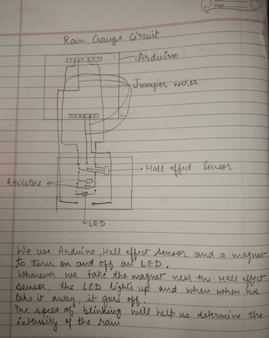 Rain Gauge Circuit
Arduino
Jumper wires
Hall effect Sensor
Resistors
LED
We use Arduino, Hall effect sensor and a magnet
to turn on and off an LED.
Whenever we take the magnet near the Hall effect
sensor, the LED lights up and when when we
take it away, it goes off.
The speed of blinking will help us determine the
intensity of the rain